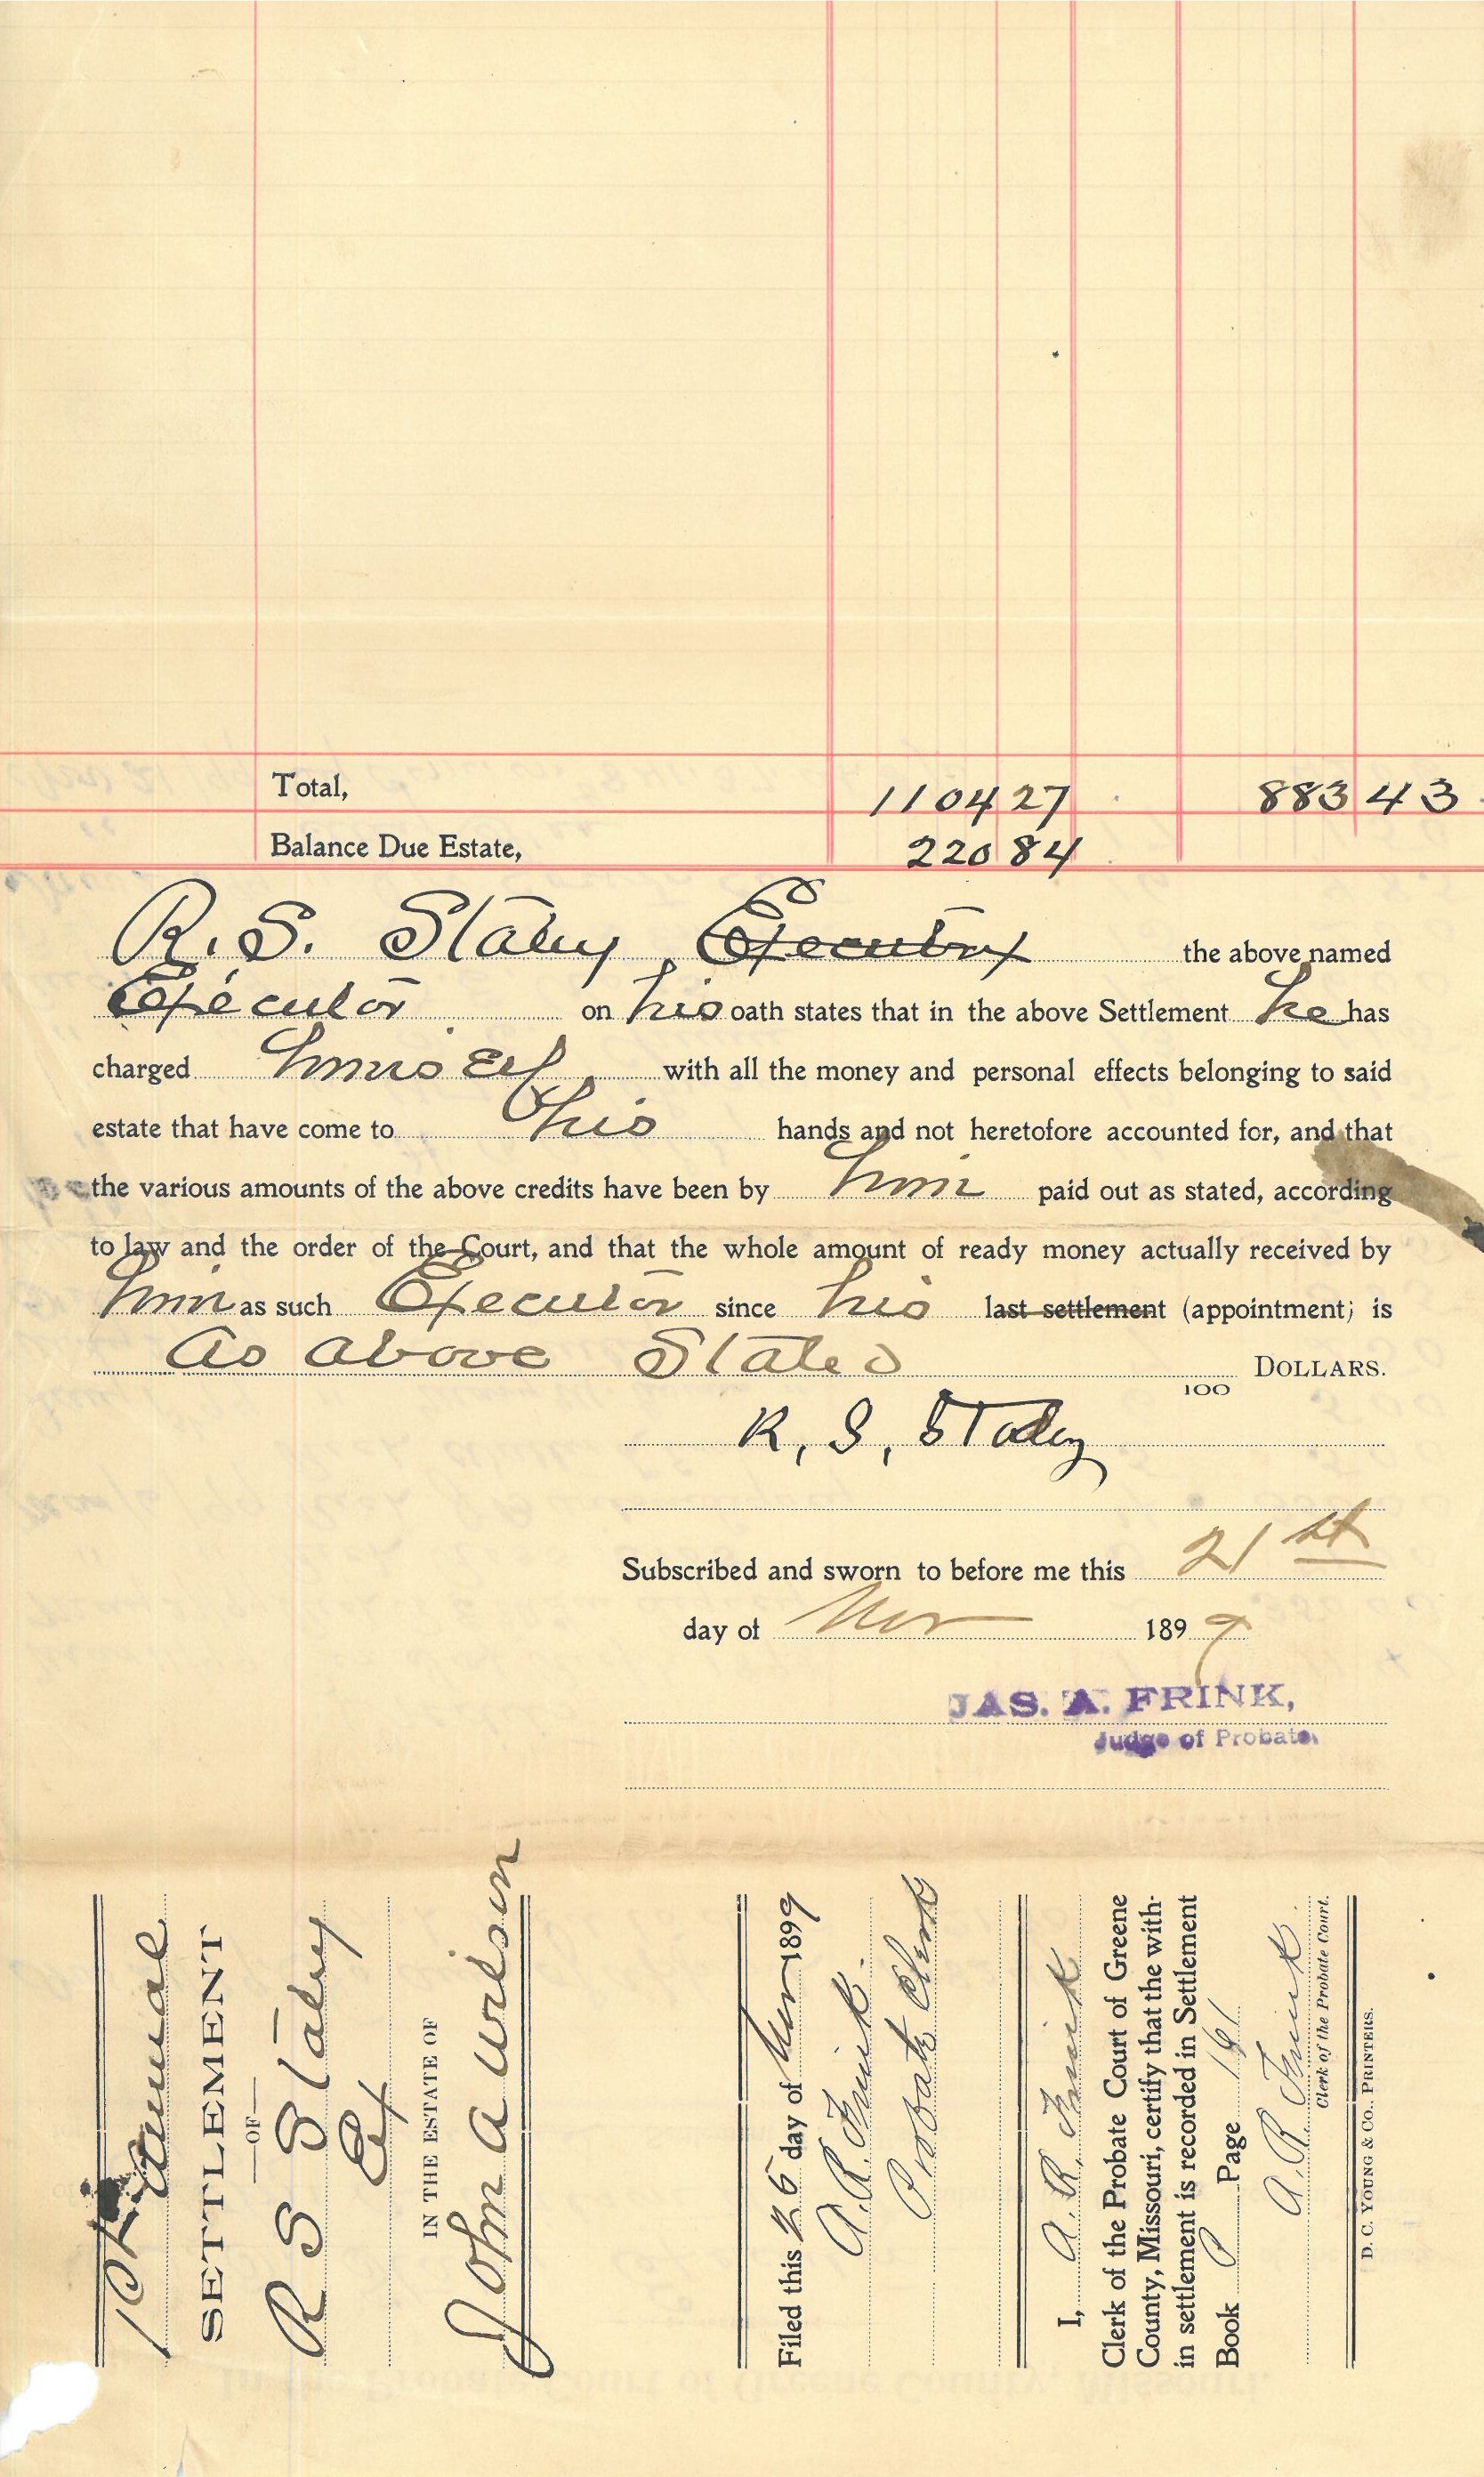 Total, 1104 27 883 43
Balance Due Estate, 220 84
R. S. Staley, Executrix the above named
Executor on his oath states that in the above Settlement he has
charged himself with all the money and personal effects belonging to said
estate that have come to his hands and not heretofore accounted for, and that
the various amounts of the above credits have been by him paid out as stated, according
to law and the order of the Court, and that the whole amount of ready money actually received by
him as such Executor since his last settlement (appointment) is
As above Stated
100 DOLLARS.
R. S. Staley
Subscribed and sworn to before me this 21st
day of Nov 1899
JAS. A. FRINK,
Judge of Probate.
1st Annual
SETTLEMENT
—OF—
R S Staley
Ex
IN THE ESTATE OF
John A Wilson
Filed this 25 day of Nov 1899
A. R. Frink.
Probate Clerk
I, A. R. Frink
Clerk of the Probate Court of Greene
County, Missouri, certify that the with-
in settlement is recorded in Settlement
Book P Page
A. R. Frink.
Clerk of the Probate Court.
D. C. YOUNG & CO., PRINTERS.